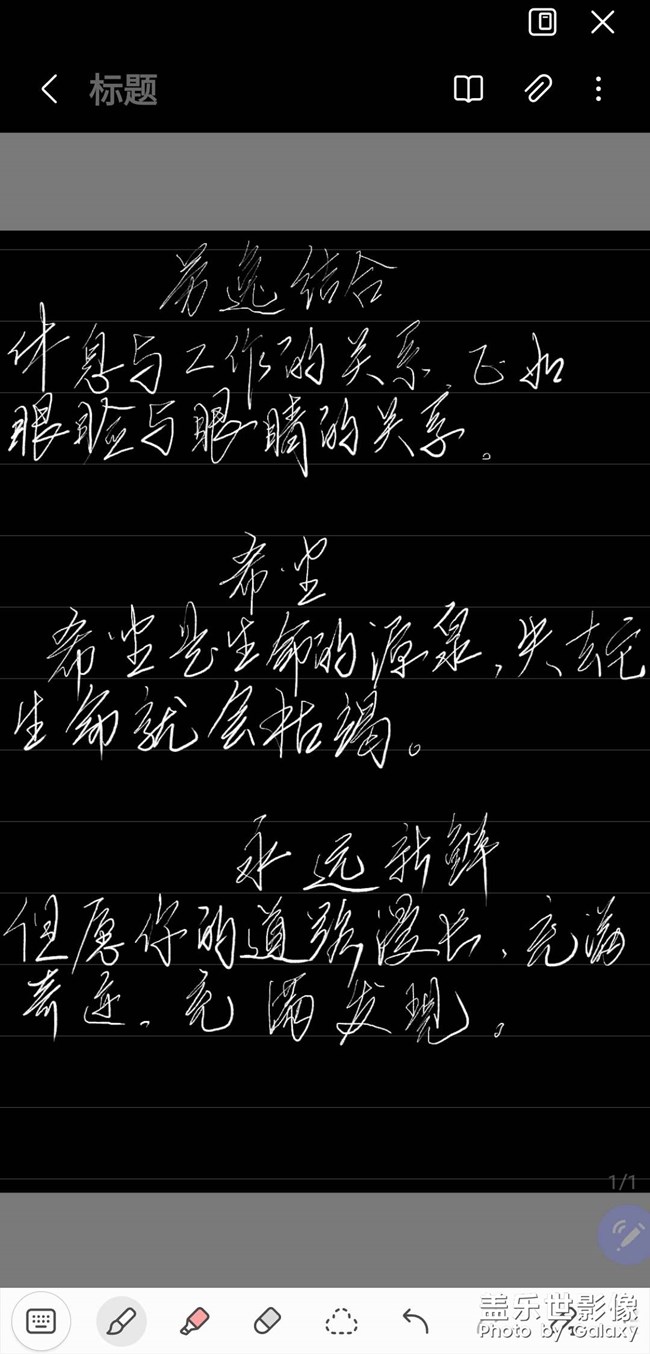 标题
劳逸结合
休息与工作的关系，正如
眼睑与眼睛的关系。
希望
希望是生命的源泉，失去它
生命就会枯竭。
永远新鲜
但愿你的道路漫长，充满
奇迹，充满发现。
1/1
盖乐世影像
Photo by Galaxy